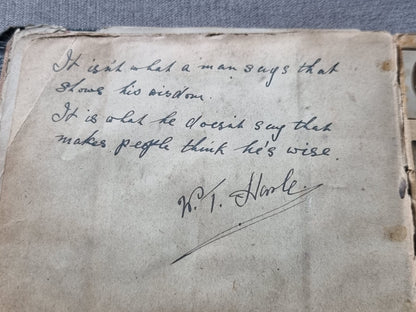 It isn't what a man says that
shows his wisdom.
It is what he doesn't say that
makes people think he's wise.
W. T.